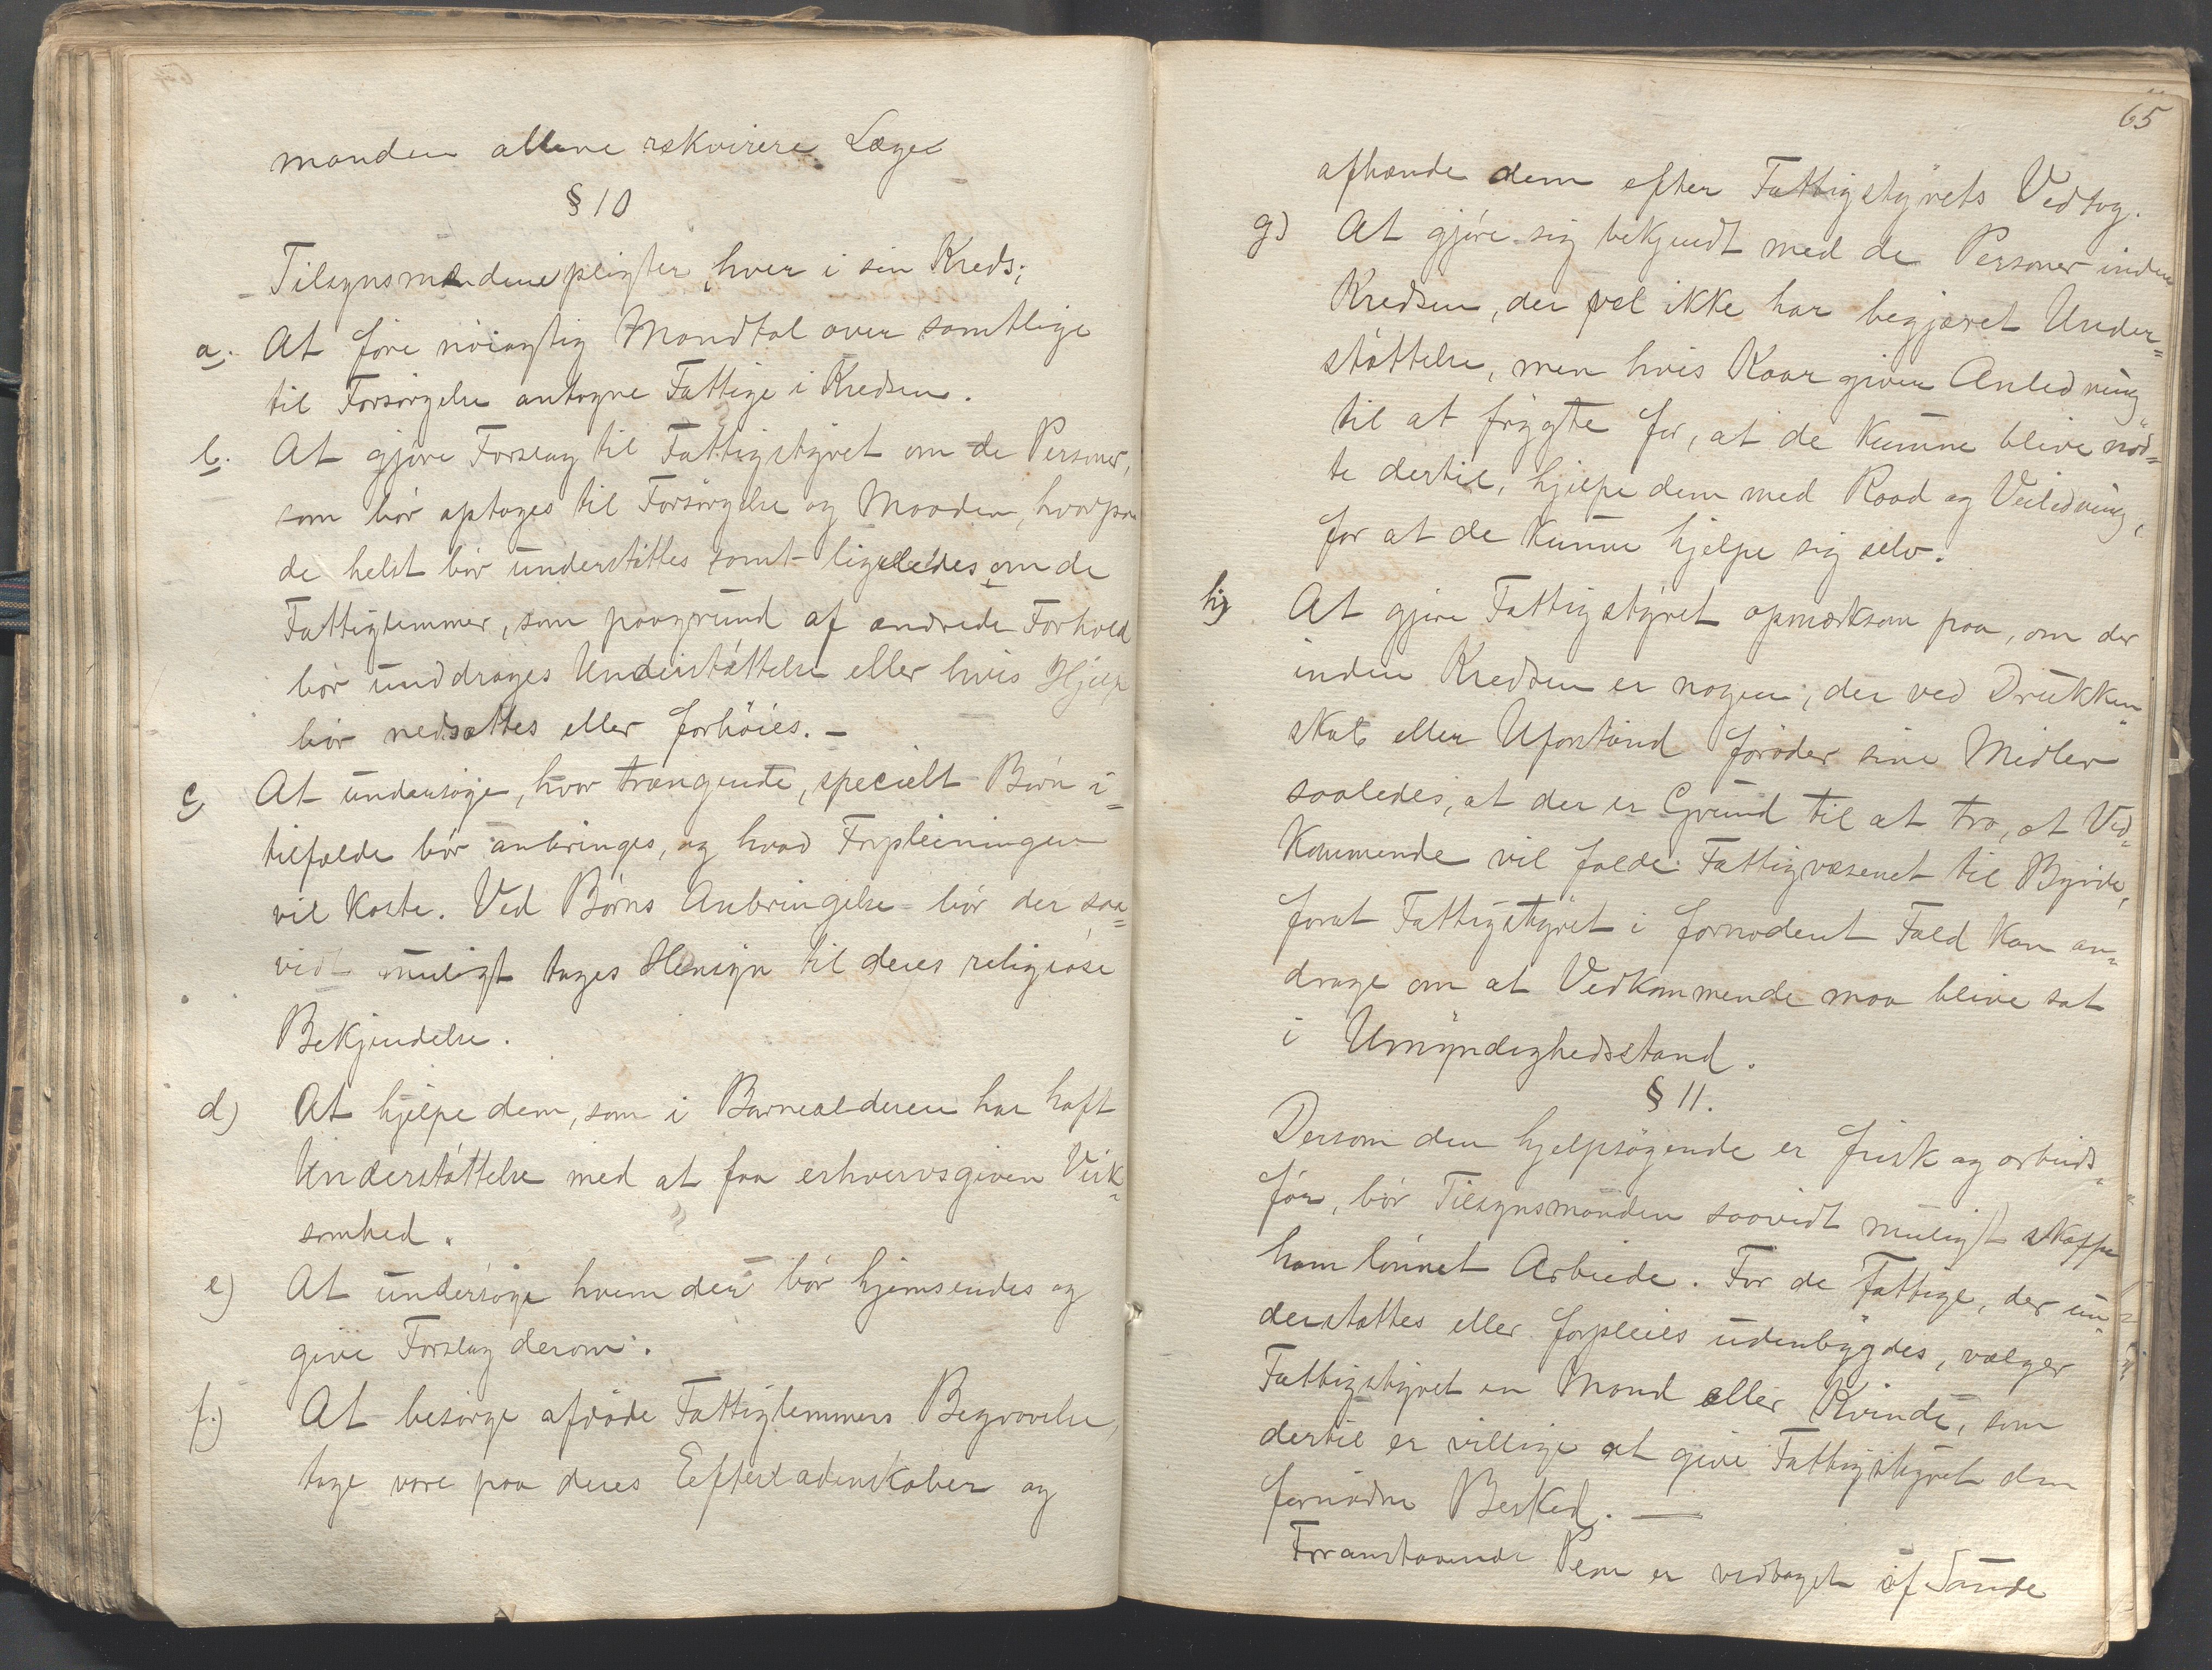 manden allene rekvirere Læge
§ 10
Tilsynsmændene pligter, hver i sin Kreds;
a. At føre nøiagtig Mandtal over samtlige
til Forsørgelse antagne Fattige i Kredsen.
b. At gjøre Forslag til Fattigstyret om de Personer,
som bør optages til Forsørgelse og Maaden, hvorpaa
de helst bør understøttes samt ligeledes om de
Fattiglemmer, som paagrund af ændrede Forhold
bør unddrages Understøttelse eller hvis Hjelp
bør nedsættes eller forhøies. —
c) At undersøge, hvor trængende, specielt Børn i=
tilfælde bør anbringes, og hvad Forpleiningen
vil koste. Ved Børns Anbringelse bør der saa=
vidt muligt tages Hensyn til deres religiøse
Bekjendelse.
d) At hjelpe dem, som i Barnealderen har haft
Understøttelse med at faa erhvervsgiven Virk=
somhed.
e) At undersøge hvem der bør hjemsendes og
give Forslag derom.
f.) At besørge afdøde Fattiglemmers Begravelse,
tage vare paa deres Efterladenskaber og
65
afhænde dem efter Fattigstyrets Vedtag.
g) At gjøre sig bekjendt med de Personer inden
Kredsen, der vel ikke har begjæret Under=
støttelse, men hvis Kaar giver Anledning
til at frygte for, at de kunne blive nød=
te dertil, hjelpe dem med Raad og Veiledning,
for at de kunne hjelpe sig selv.
h) At gjøre Fattigstyret opmærksom paa, om der
inden Kredsen er nogen, der ved Drukken=
skab eller Uforstand forøder sine Midler
saaledes, at der er Grund til at tro, at Ved=
kommende vil falde Fattigvæsenet til Byrde,
forat Fattigstyret i fornødent Fald kan an=
drage om at Vedkommende maa blive sat
i Umyndighedsstand.
§ 11.
Dersom den hjelpsøgende er frisk og arbeids=
før, bør Tilsynsmanden saavidt muligt skaffe
ham lønnet Arbeide. For de Fattige, der un=
derstøttes eller forpleies udenbygdes, vælger
Fattigstyret en Mand eller Kvinde, som
dertil er villige at give Fattigstyret den
fornødne Besked. —
Foranstaaende Plan er vedtaget af Sande